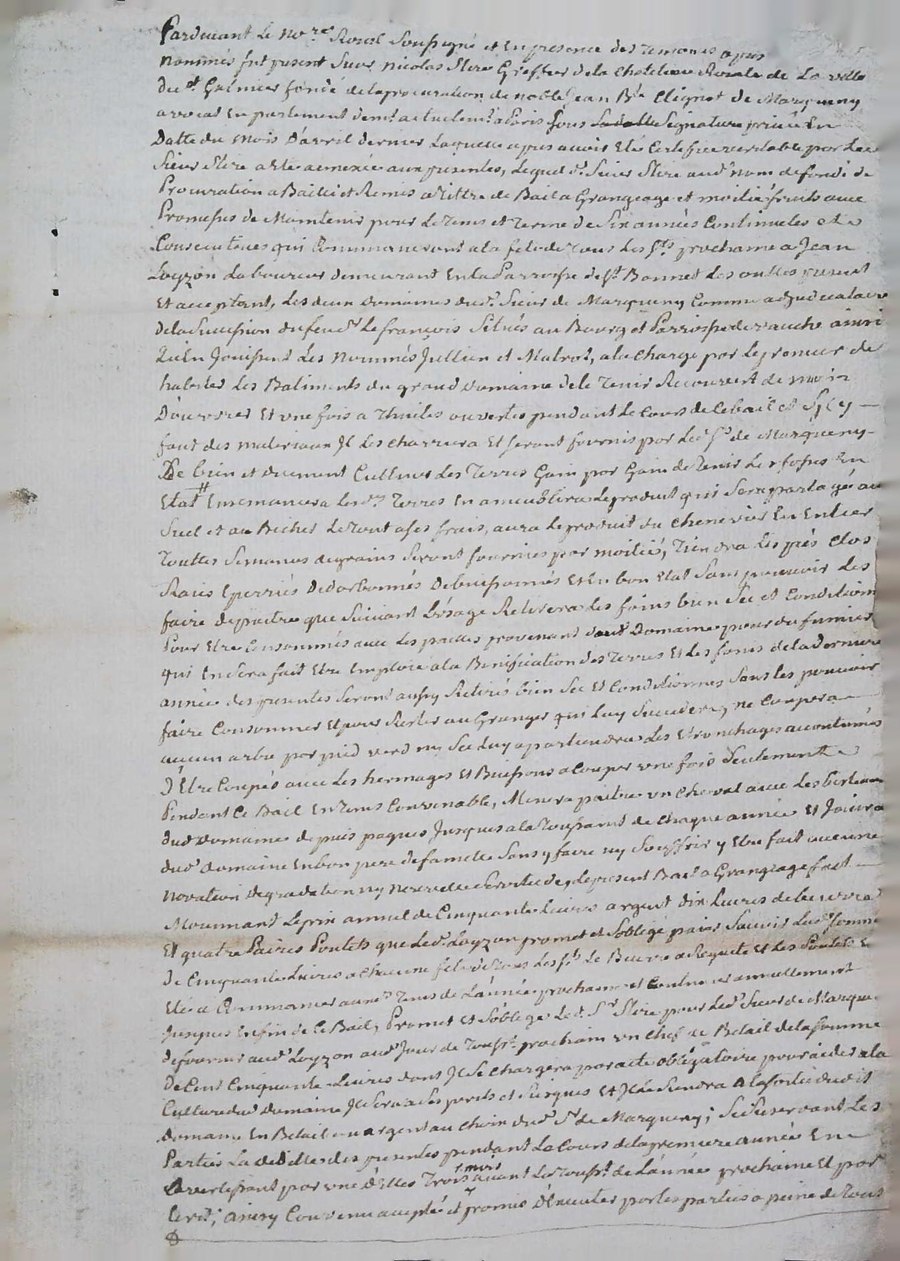 Pardevant Le No.re Royal Soussigné et En presence des temoins apres
nommés fut present Sieur Nicolas Mire Greffier de la Chatelenie Royale de La ville
de st Galmier fondé de la procuration de noble jean B.te Clignet de Marqueny
avocat En parlement demt actuelemt a Paris sous Signature privée En
Datte du mois D'avril dernier Laquelle apres avoir Eté Certifiée veritable par Led
Sieur Mire a Eté annexée aux presentes, Lequel d. Sieur Mire aud. nom de fondé de
Procuration a Baillé et Remis a Tiltre de Bail a Grangeage et moitié fruits avec
Promesses de Maintenir pour Le tems et terme de Six années Continuelles Et
Consecutives qui Commenceront a la fete de Tous Les Sts prochaine a Jean
Loyzon Laboureur demeurant En la Parroisse de St Bonnet Les oulles present
Et acceptant, Les deux Domaines dud. Sieur de Marqueny Comme adjudicataire
de la Succession du feu Sr Lefrançois Situés au Bourg et Parroisse de vauche ainsi
qu'En Jouissent Les Nommés Jullien et Matrot, a la Charge par Le preneur de
habiter Les Batiments du grand Domaine de le Tenir Recouvert de main
D'ouvrier Et une fois a Thuiles ouvertes pendant Le Cours de Ce bail et S'il y
faut des materiaux Il Les Charriera Et Seront fournis par Led. Sr de Marqueny
De bien et duement Cultiver Les Terres Gain par Gain de Tenir Les fossés En
Etat Ensemancera Lesd. Terres En ameublira Le produit qui Sera partagé au
Suel et au Bichet Le Tout a Ses frais, aura Le produit du Chenevier En Entier
Touttes Semances de grains Seront fournies par moitié, Tiendra Les prés Clos
Raiés Eperriés Dedarbonnés Debuissonnés Et En bon Etat Sans pouvoir Les
faire depaitre que Suivant L'usage Retirera Les foins bien Sec et Conditionné
Pour Etre Consommés avec Les pailles provenant dud. Domaine pour du fumier
qui En Sera fait Etre Emploié a la Bonification des Terres Et Les foins de la derniere
année des presentes Seront aussy Retirés bien Sec Et Conditionnés Sans Les pouvoir
faire Consommer Et pour Rester au Granger qui Luy Succedera, ne Coupera
aucun arbre par pied verd ny Sec Luy apartiendra Les Etronchages accoutumés
D'Etre Coupés avec Les hermages Et Buissons a Couper une fois Seulement
Pendant Ce Bail En Tems Convenable, Menera paitre un Cheval avec Les bestiaux
dud. Domaine depuis paques Jusques a la Toussaint de Chaque année Et Jouira
dud. Domaine En bon pere de famille Sans y faire ny Souffrir y Etre fait aucune
novation degradation ny nouvelle Servitude, Le present Bail a Grangeage fait
Moyennant Le prix annuel de Cinquante Livres argent dix Livres de beurre
Et quatre Paires Poulets que Led. Loyzon promet et S'oblige paier Savoir Lad. Somme
De Cinquante Livres a Chacune fete de Tous Les Sts Le Beurre a Requete Et Les Poulets
Eté a Commancer au mt Tems de L'année prochaine et Continuer annuellement
Jusques En fin de Ce Bail, Promet et S'oblige Led. Sr Mire pour Led. Sieur de Marqueny
de fournir aud. Loyzon aud. Jour de Toussts prochain un Chef de Betail de la Somme
De Cent Cinquante Livres dont Il Se Chargera par acte obligatoire pour aider a la
Culture dud. Domaine Il Sera a Ses perils et Risques Et Il Le Rendra a la Sortie dud
Domaine En Betail ou argent au Choix dud. Sr de Marqueny; Se Reservant Les
Parties La dedite des presentes pendant Le Cours de la premiere année En
avertissant par une D'Elles Trois mois avant La Toussts de L'année prochaine Et par
Ecrit; ainsy Convenu accepté et promis D'Executer par Les parties a peine de Tous